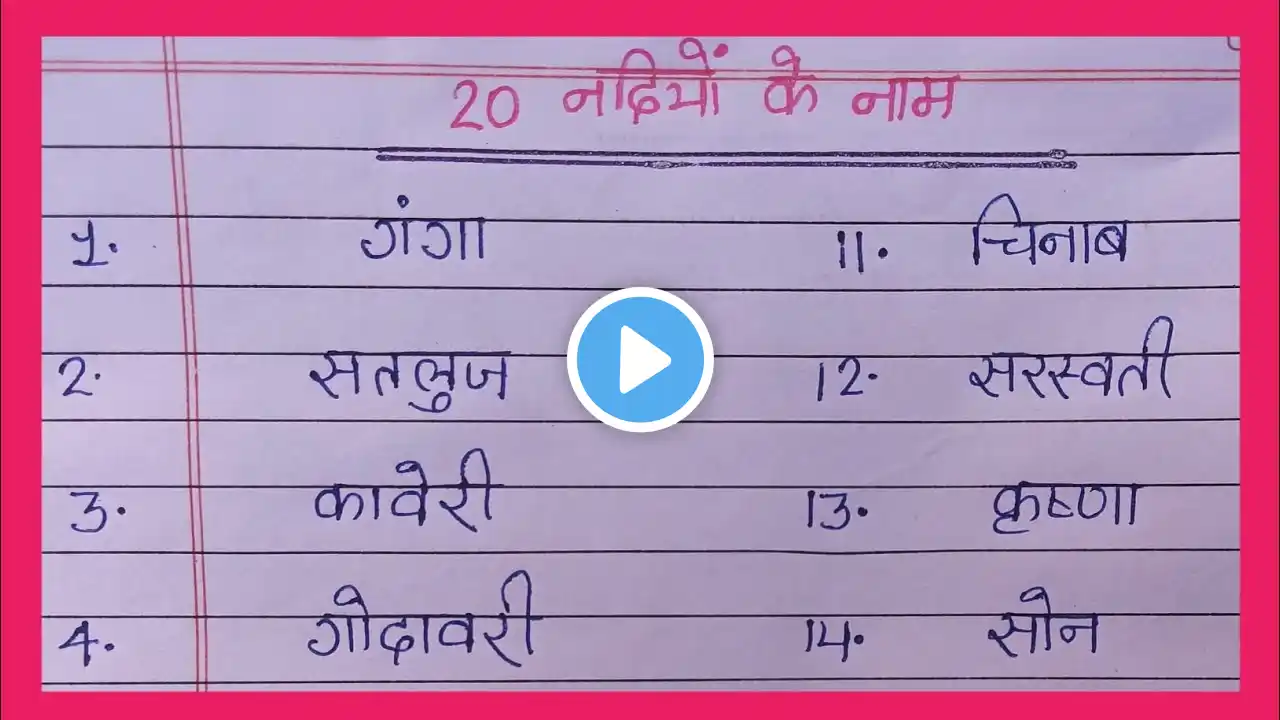 20 नदियों के नाम
1. गंगा 11. चिनाब
2. सतलुज 12. सरस्वती
3. कावेरी 13. कृष्णा
4. गोदावरी 14. सोन